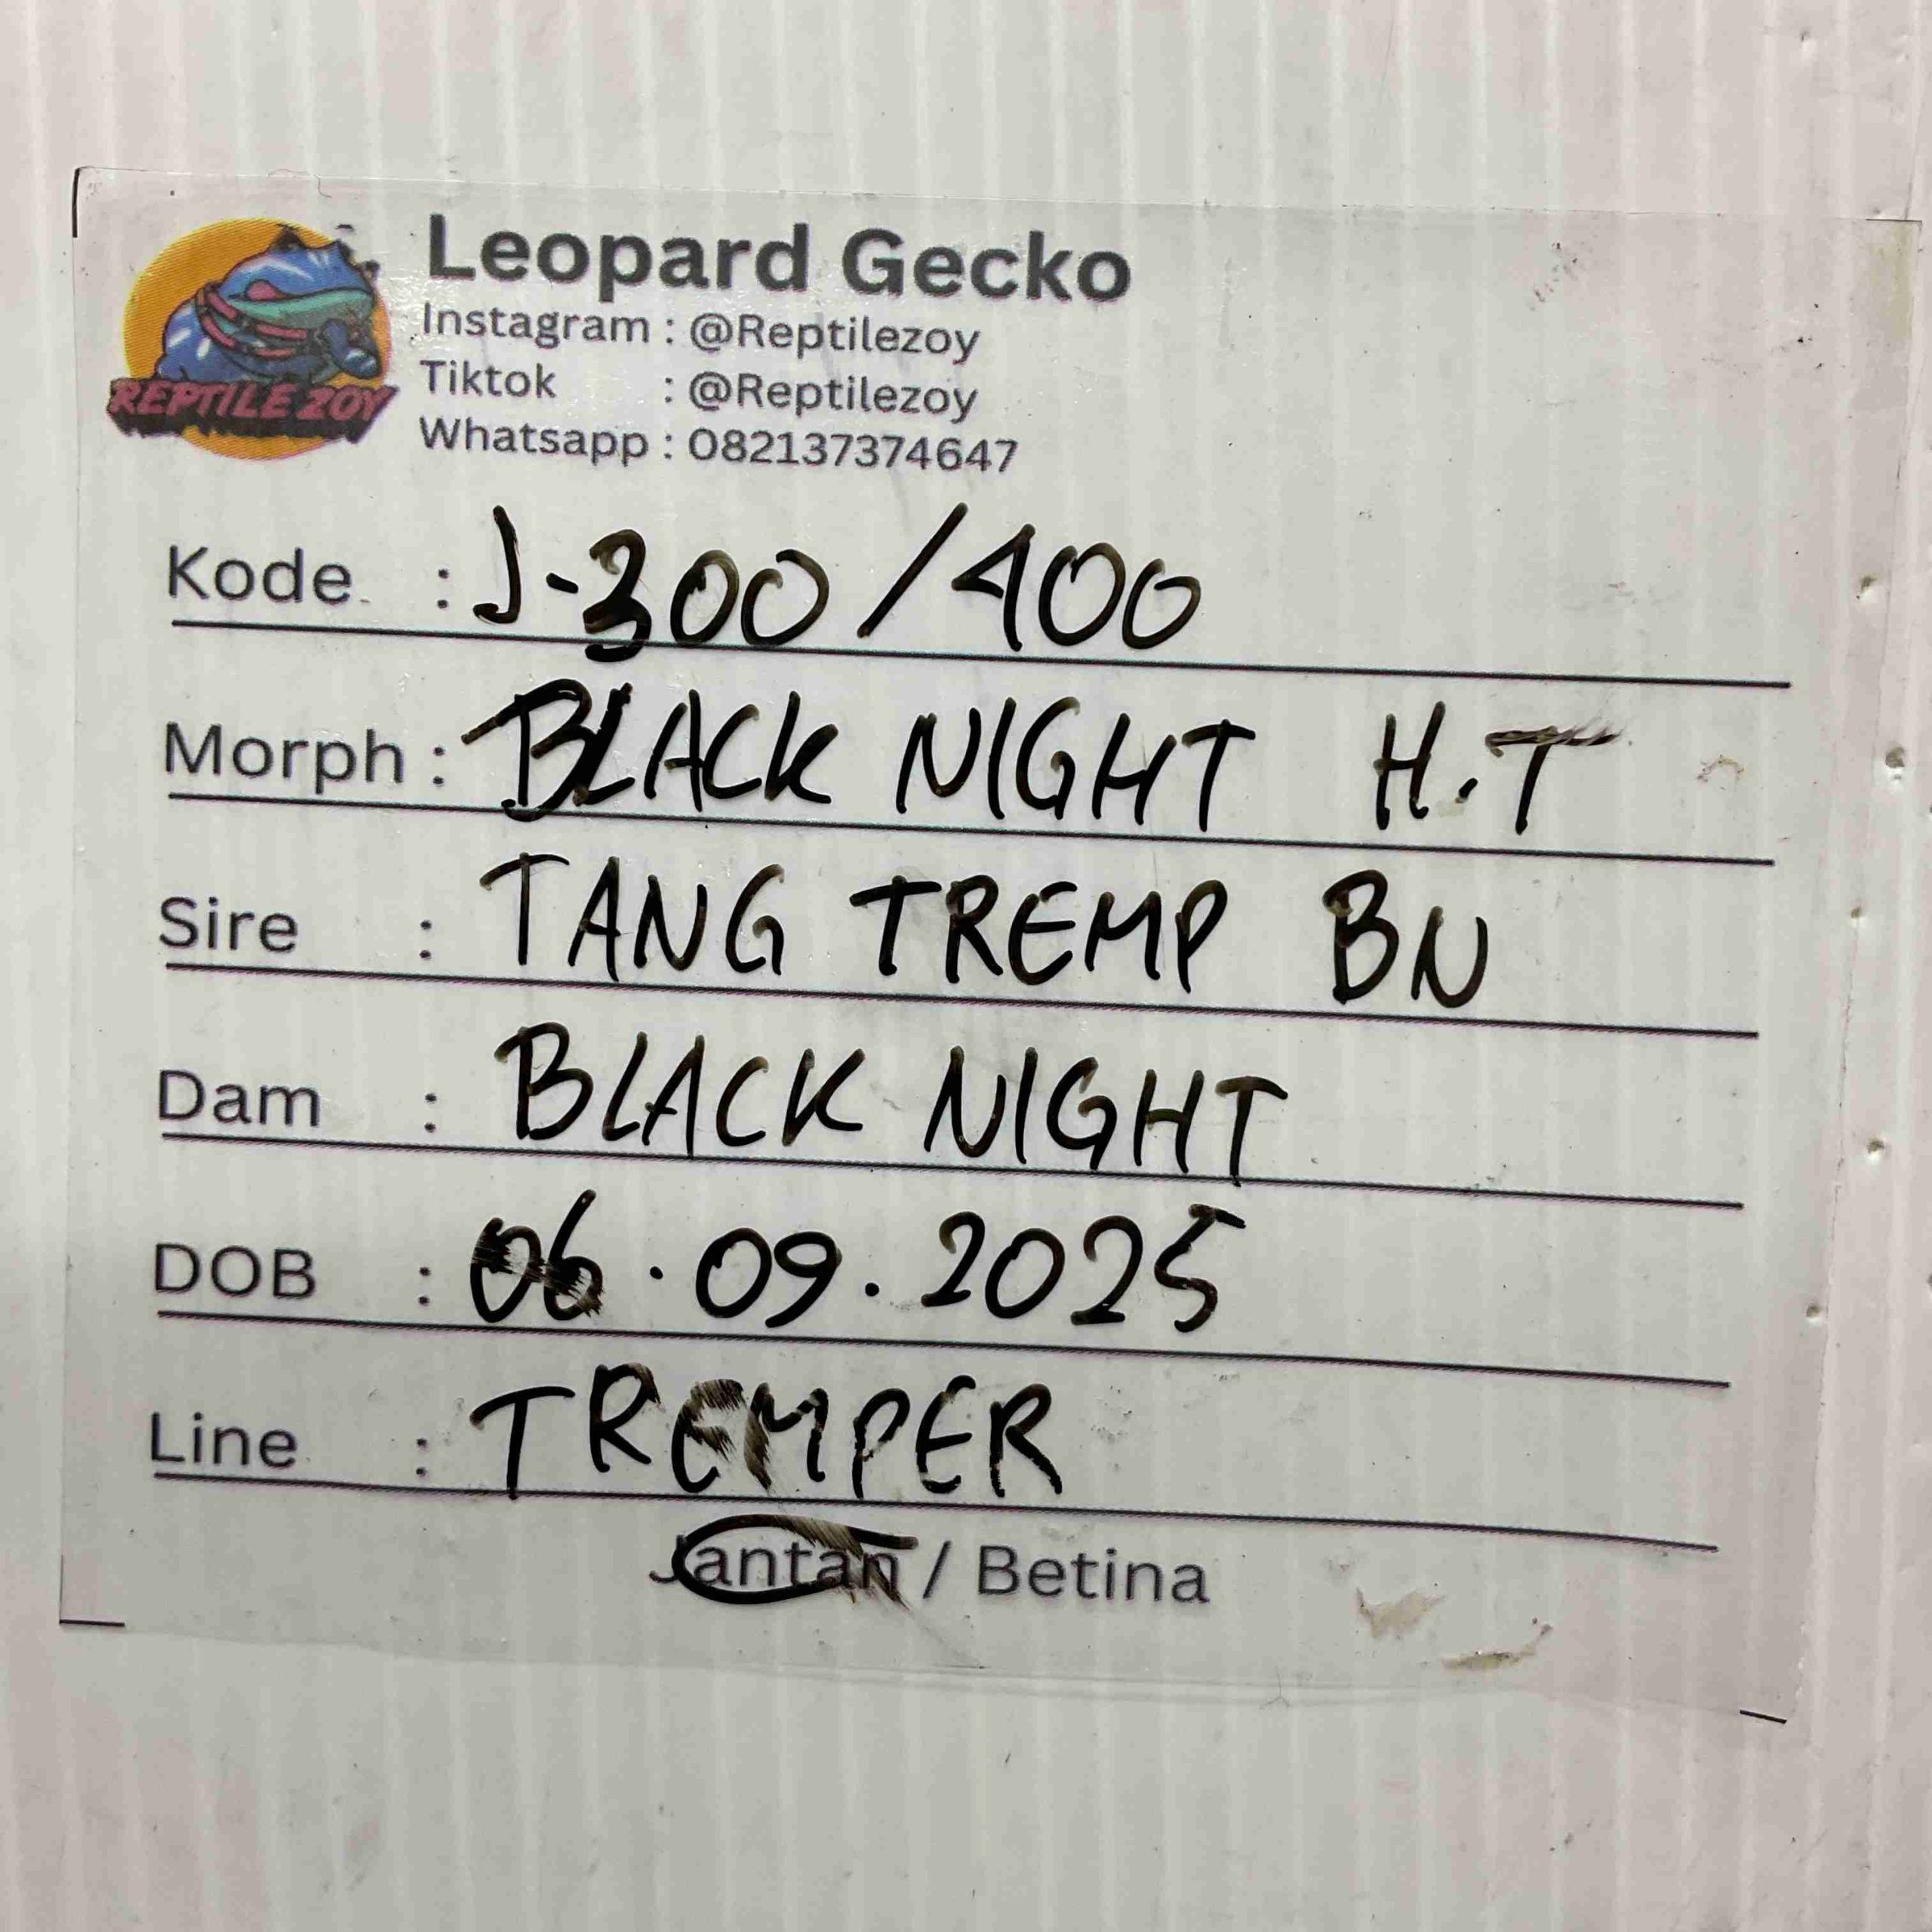 Leopard Gecko
Instagram : @Reptilezoy
Tiktok : @Reptilezoy
Whatsapp : 082137374647
REPTILE ZOY
Kode : J-300/400
Morph : BLACK NIGHT H.T
Sire : TANG TREMP BN
Dam : BLACK NIGHT
DOB : 06.09.2025
Line : TREMPER
Jantan / Betina